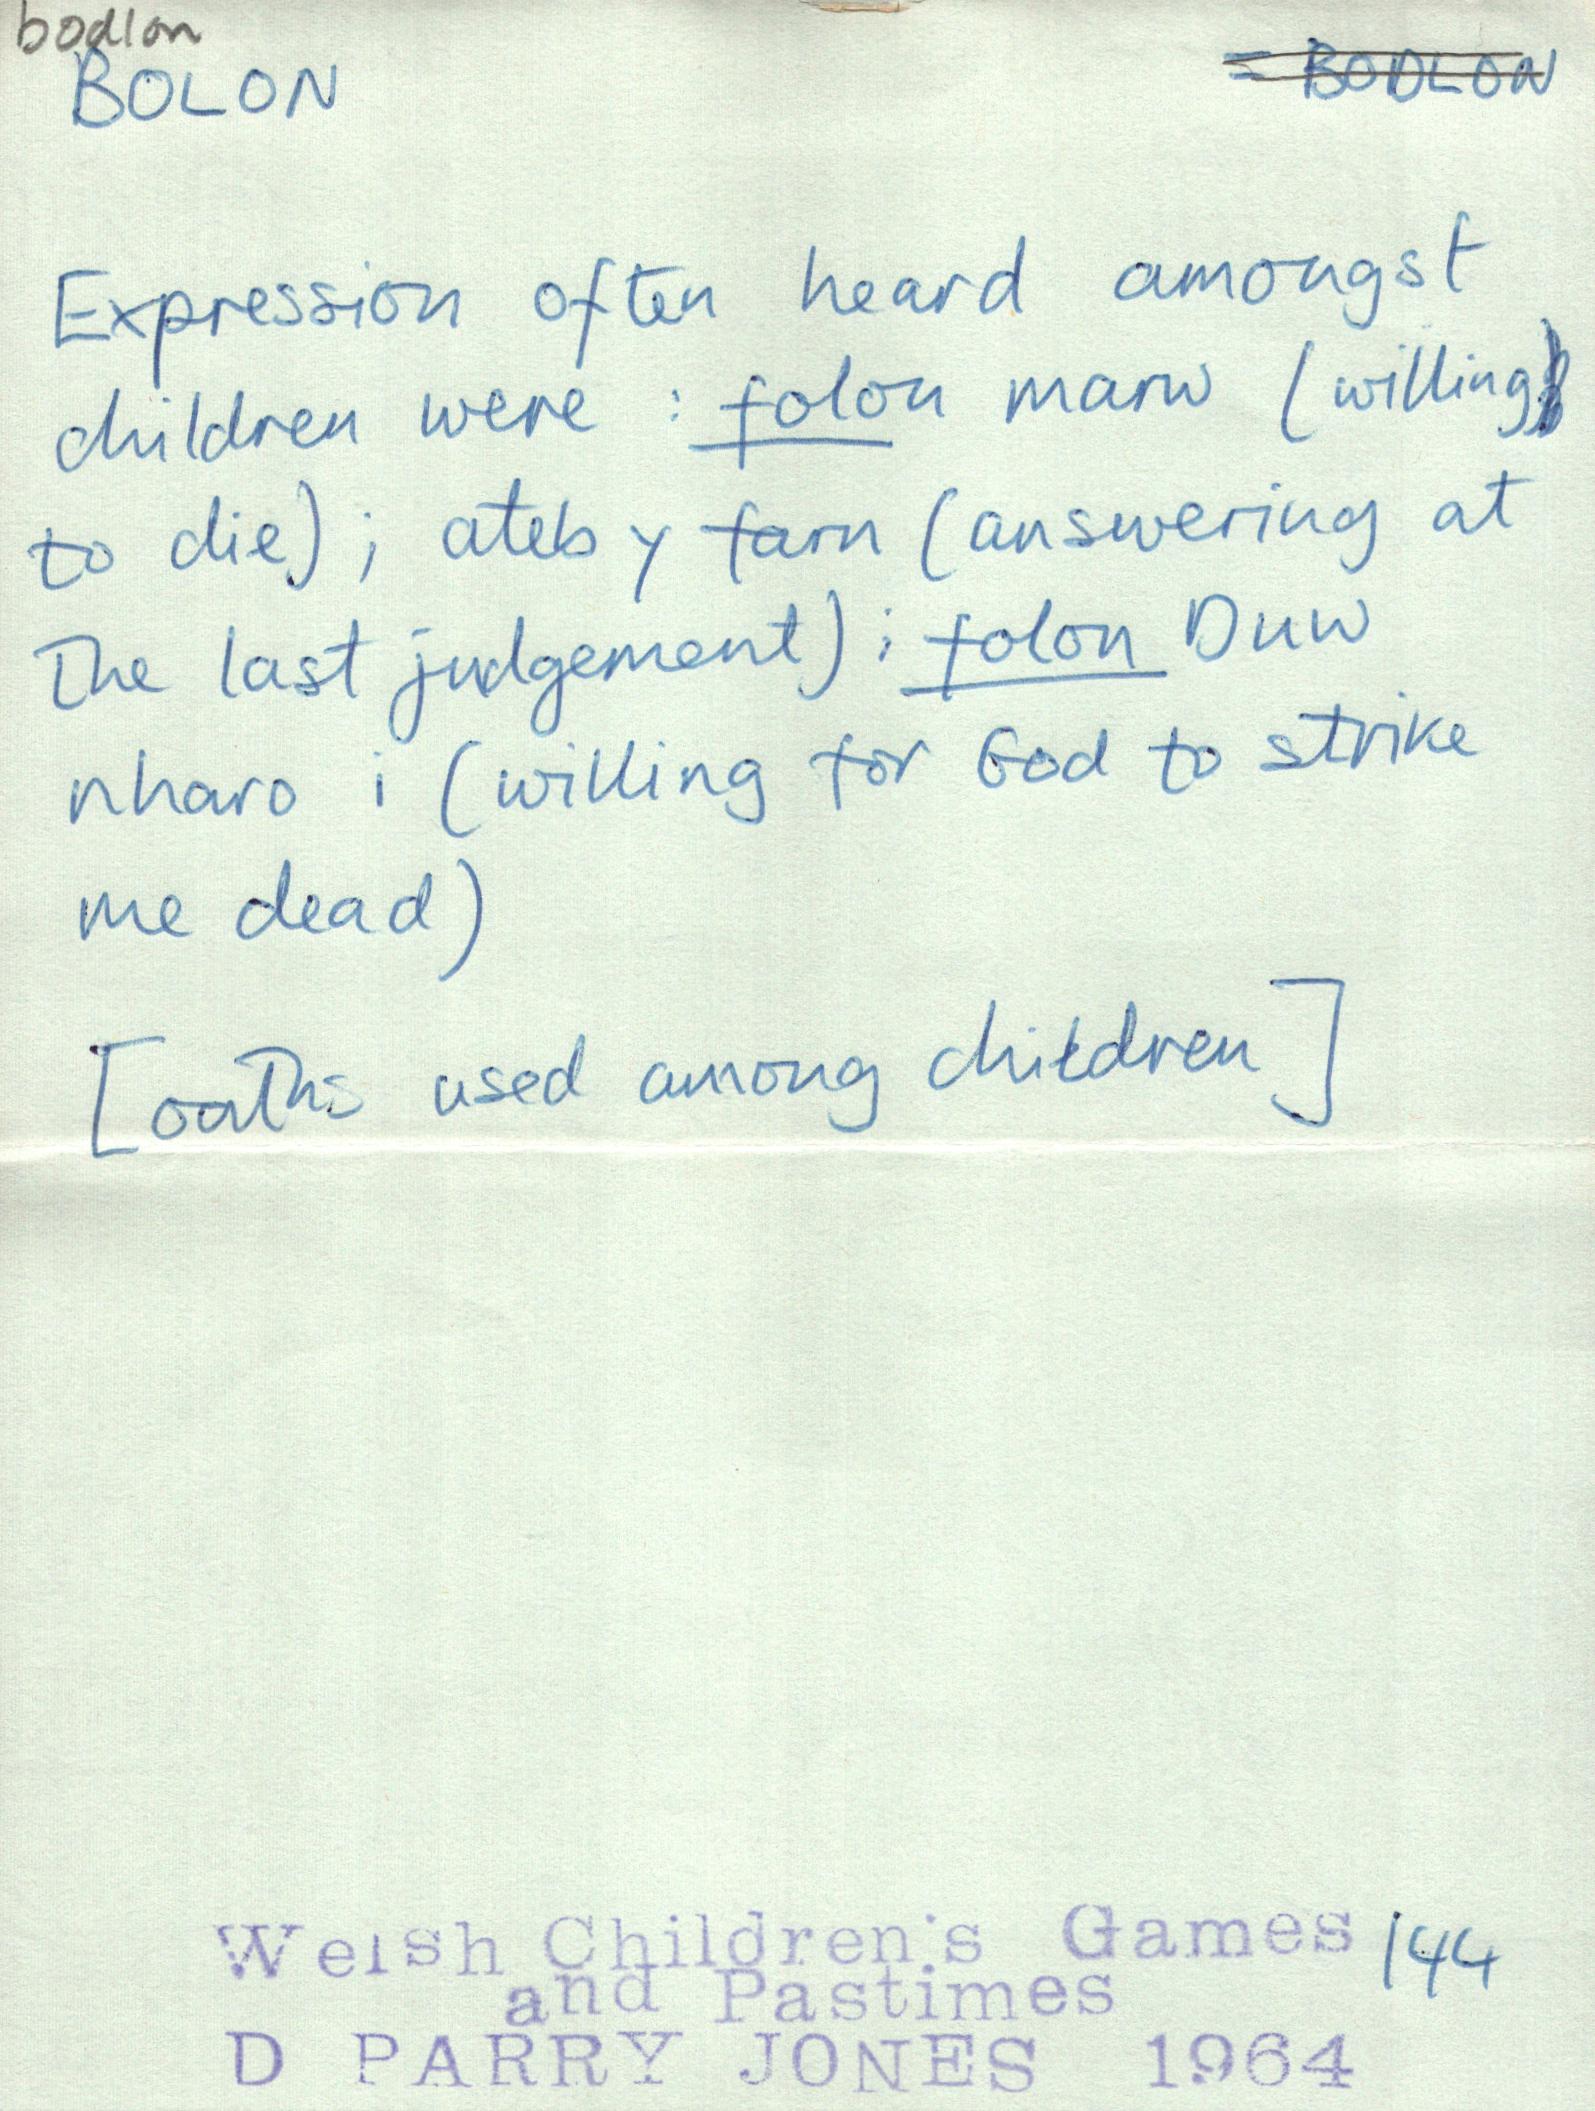 bodlon
BOLON = BODLON
Expression often heard amongst
children were : folon marw (willing
to die) ; ateb y farn (answering at
The last judgement) ; folon Duw
nharo i (willing for God to strike
me dead)
[oaths used among children]
Welsh Children's Games 144
and Pastimes
D PARRY JONES 1964